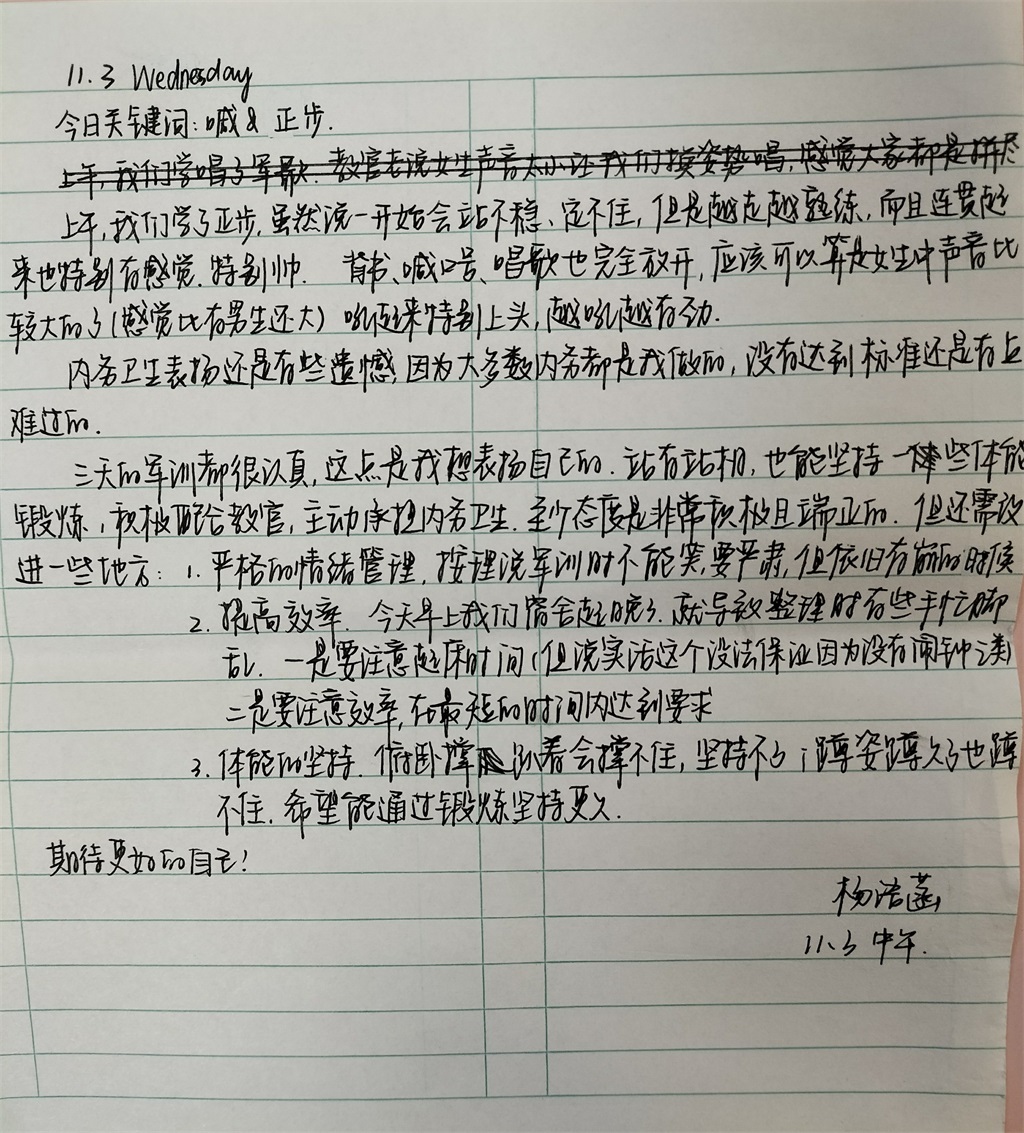 11.3 Wednesday
今日关键词:喊&正步.
上午,我们学唱了军歌.教官老说女生声音太小让我们摸姿势唱,感觉大家都是拼尽
上午,我们学了正步,虽然说一开始会站不稳、定不住,但是越走越熟练,而且连贯起
来也特别有感觉.特别帅.背书、喊口号、唱歌也完全放开,应该可以算是女生中声音比
较大的了(感觉比有男生还大)吼起来特别上头,越吼越有劲.
内务卫生表扬还是有些遗憾,因为大多数内务都是我做的,没有达到标准还是有点
难过的.
三天的军训都很认真,这点是我想表扬自己的.站有站相,也能坚持一些体能
锻炼,积极配合教官,主动承担内务卫生.至少态度是非常积极且端正的.但还需改
进一些地方:1.严格的情绪管理.按理说军训时不能笑,要严肃,但依旧有崩的时候
2.提高效率.今天早上我们宿舍起晚了.就导致整理时有些手忙脚
乱.一是要注意起床时间(但说实话这个没法保证因为没有闹钟之类)
二是要注意效率,在最短的时间内达到要求
3.体能的坚持.俯卧撑趴着会撑不住,坚持不了;蹲姿蹲久了也蹲
不住.希望能通过锻炼坚持更久.
期待更好的自己!
杨浩菡
11.3 中午.